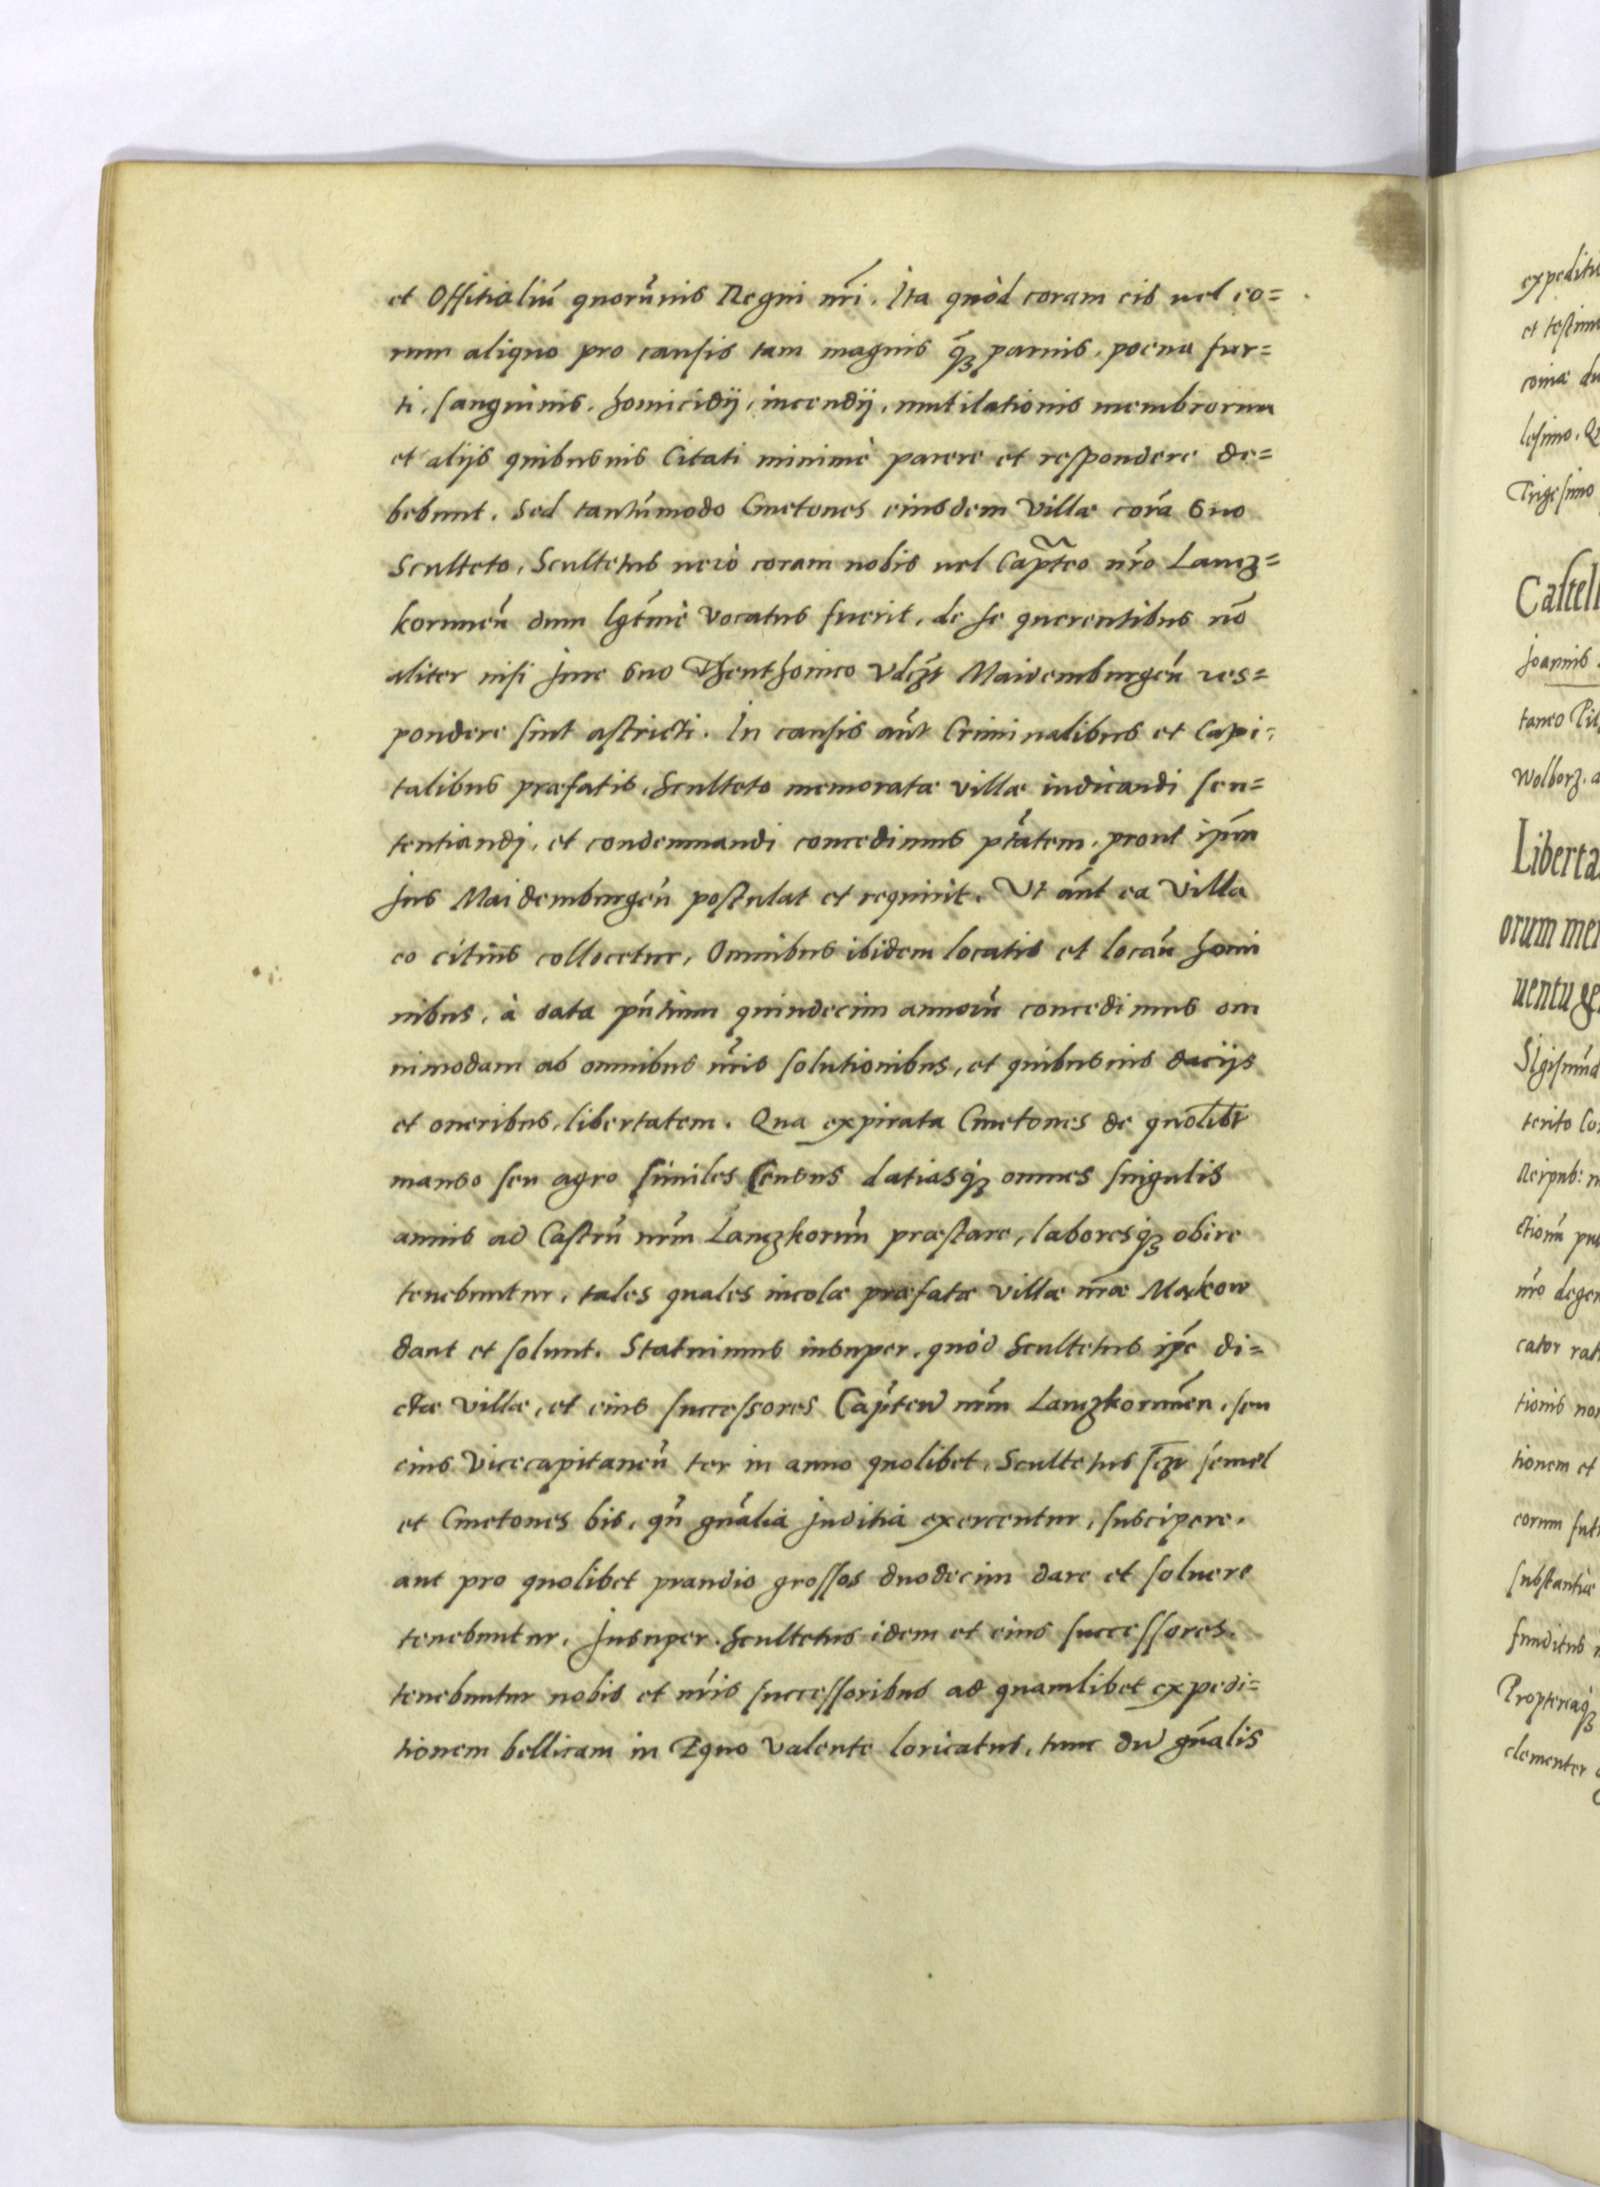 et Offitialiũ quorũuis Regni nr̃i. Ita quòd coram eis uel eo=
rum aliquo pro causis tam magnis q̃ꝫ paruis, poena fur=
ti, sanguinis, homicidij, incendij, mutilationis membrorum
et alijs quibusuis Citati minimè parere et respondere de=
bebunt. Sed tantũmodo Cmetones eiusdem Villæ corã suo
Sculteto, Scultetus uerò coram nobis uel Cap̃teo nr̃o Lanczꝫ=
korunen̄ dum lgt̃imè Vocatus fuerit, de se querentibus nõ
aliter nisi Jure suo Thenthonico Vdczt̃ Maidemburgen̄ res=
pondere sint astricti. In causis aũt Criminalibus et Capi=
talibus præfatis, Sculteto memoratæ Villæ iudicandi sen=
tentiandj, et condemnandi concedimus p̃tatem, prout ip̃m
Jus Maidemburgen̄ postulat et requirit. Vt aũt ea Villa
eo citius collocetur, Omnibus ibidem locatis et locan̄ homi
nibus, à data pñtium quindecim annorũ concedimus om
nimodam ab omnibus nr̃is solutionibus, et quibusuis dacijs
et oneribus, libertatem. Qua expirata Cmetones de quolibt̃
manso seu agro similes Census datiasqꝫ omnes singulis
annis ad Castrũ nr̃m Lanczkorun̄ præstare, laboresqꝫ obire
tenebuntur, tales quales incolæ præfatæ Villæ nr̃æ Makow
dant et soluunt. Statuimus insuper, quòd Scultetus ip̃e di=
ctæ Villæ, et eius successores Cap̃teũ nr̃m Lanczkorunen̄, seu
eius Vicecapitaneũ ter in anno quolibet, Scultetus sczt̃ semel
et Cmetones bis, qñ gñalia Juditia exercentur, suscipere,
aut pro quolibet prandio grossos duodecim dare et soluere
tenebuntur. Insuper Scultetus idem et eius successores,
tenebuntur nobis et nr̃is successoribus ad quamlibet expedi=
tionem bellicam in Equo Valente loricatus, tunc dũ gñalis
expeditu
et testim
coniæ du
lesimo. Q
Trigesimo
Castell
Joannis
taneo Pi
Wolborz. a
Liberta
orum mer
uentu ge
Sigismũd
terito Co
Reipub: n
ctionũ pu
nr̃o dege
cator rat
tionis non
tionem et
corum fut
substantiæ
funditus
Proptereaqꝫ
clementer